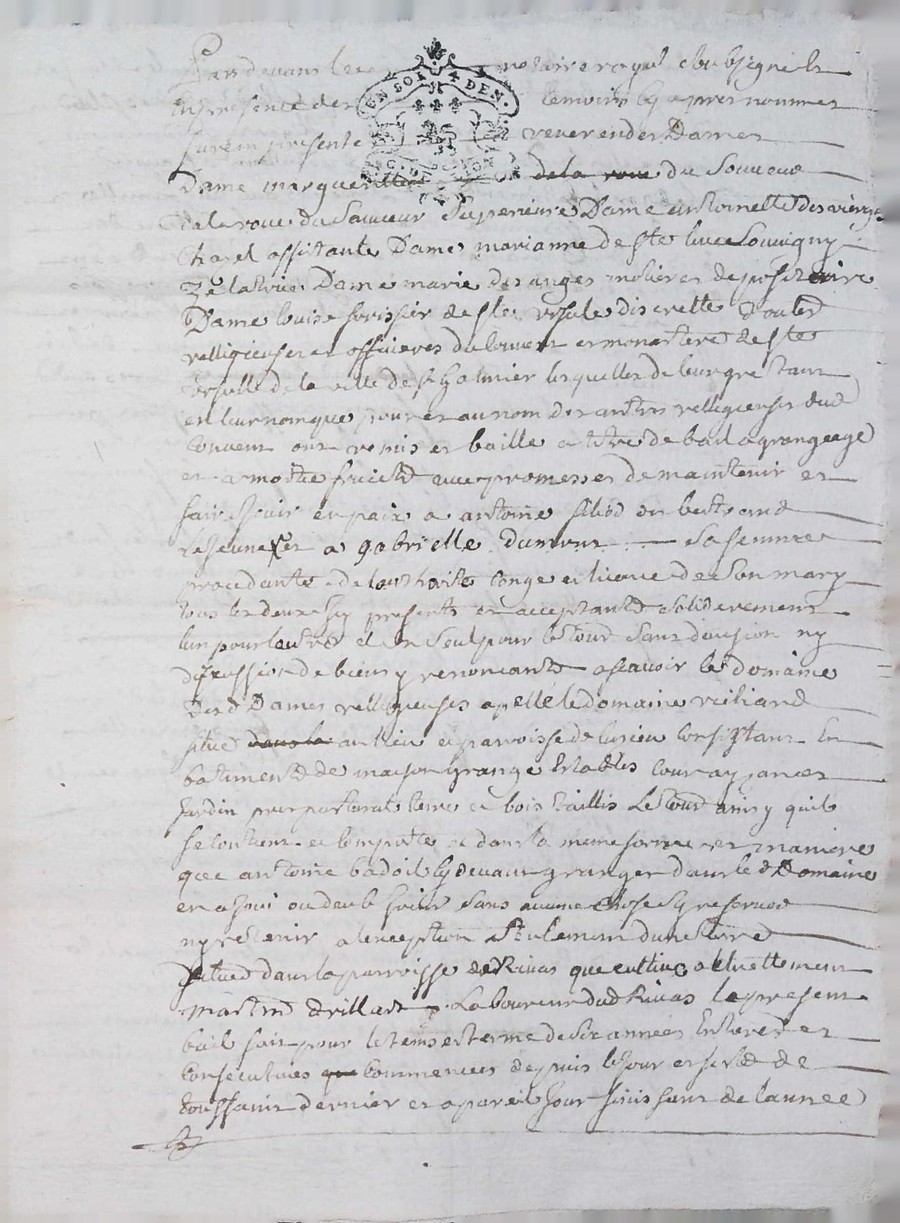 Pardevant le notaire royal soubsigné et
en presence des temoins cy apres nommes
furent presente reverendes Dames
Dame margueritte de la roue du Sauveur
de la roue du Sauveur Superieure Dame antoinette des vierges
Charel assistante Dame marianne de ste luce Souvigny
Zelatrice Dame marie des anges molieres depositaire
Dame louise forissier de ste ursule discrette toutes
relligieuses et officieres du couvent et monastere de ste
Ursulle de la ville de st Galmier lesquelles de leur gré tant
en leur nom que pour et au nom des autres relligieuses dud
Couvent ont remis et baille a titre de bail a grangeage
et a moitie fruicts avec promesses de maintenir et
faire jouir en paix a antoine bertrand
le jeune et a gabrielle dumont sa femme
procedante de lauthorité conge et licence de son mary
tous les deux icy presents et acceptants solidairement
lun pour lautre et un seul pour le tout sans division ny
discussion de biens y renoncants ascavoir le domaine
Desd Dames relligieuses apelle le domaine reiliard
situé dans la au lieu et parroisse de consistant en
batiments de maison grange Estables cour aysances
Jardin prés pasturat terres et bois taillis le tout ainsy quil
se contient et comporte et dans la meme forme et maniere
que antoine badoil cy devant granger dans led Domaine
en a joui ou deub jouir sans aucune chose sy reserver
ny retenir a lexception seulement dune terre
situee dans la parroisse de Rivas que cultive actuellement
martin drillard Laboureur dud Rivas le present
bail fait pour le tems et terme de six années Entieres et
consecutives que commencees depuis le jour et feste de
toussaint dernier et a pareil jour finissant de lannee
EN SOLS 4 DEN.
G. DE LION